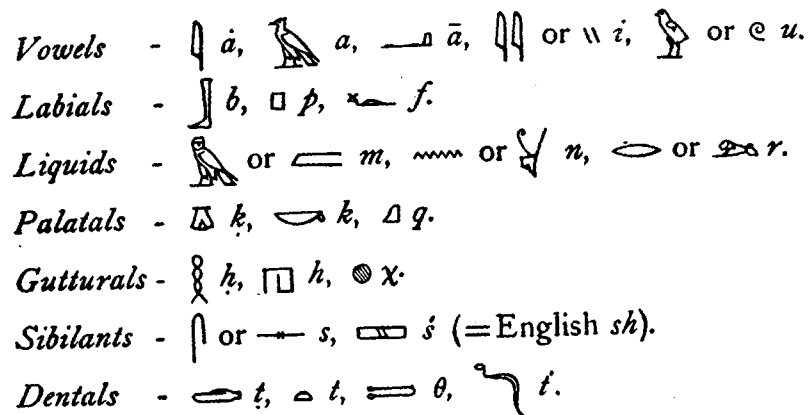 Vowels - 𓇋 ȧ, 𓄿 a, 𓂝 ā, 𓇌 or 𓏭 i, 𓅱 or 𓏲 u.
Labials - 𓃀 b, 𓊪 p, 𓆑 f.
Liquids - 𓅓 or 𓐝 m, 𓈖 or 𓋔 n, 𓂋 or 𓃭 r.
Palatals - 𓎼 ḳ, 𓎡 k, 𓈎 q.
Gutturals - 𓎛 ḥ, 𓉔 h, 𓐍 χ.
Sibilants - 𓋴 or 𓊃 s, 𓈙 ṡ (=English sh).
Dentals - 𓂧 ṭ, 𓏏 t, 𓍿 θ, 𓆓 ṫ.